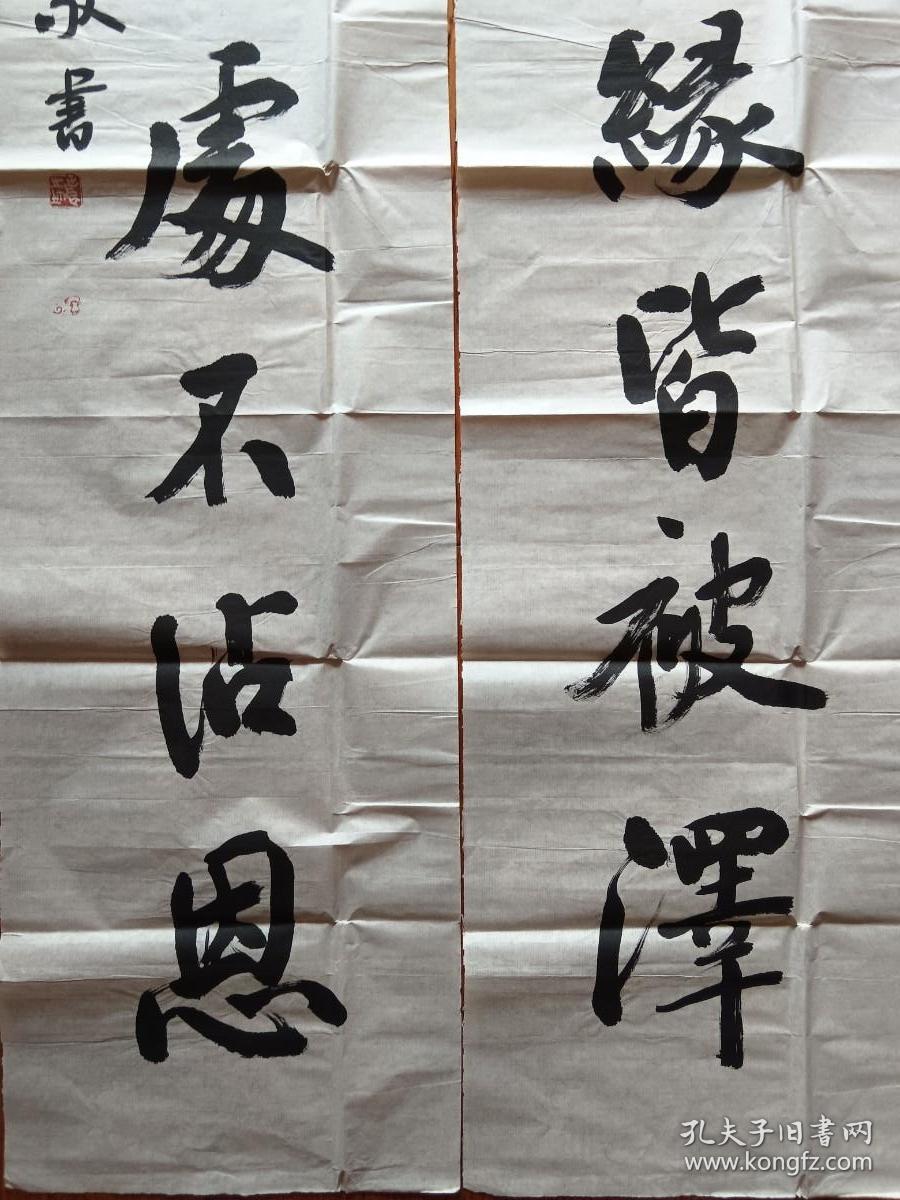 緣皆被澤
處不沾恩
敬書
孔夫子旧書网
www.kongfz.com